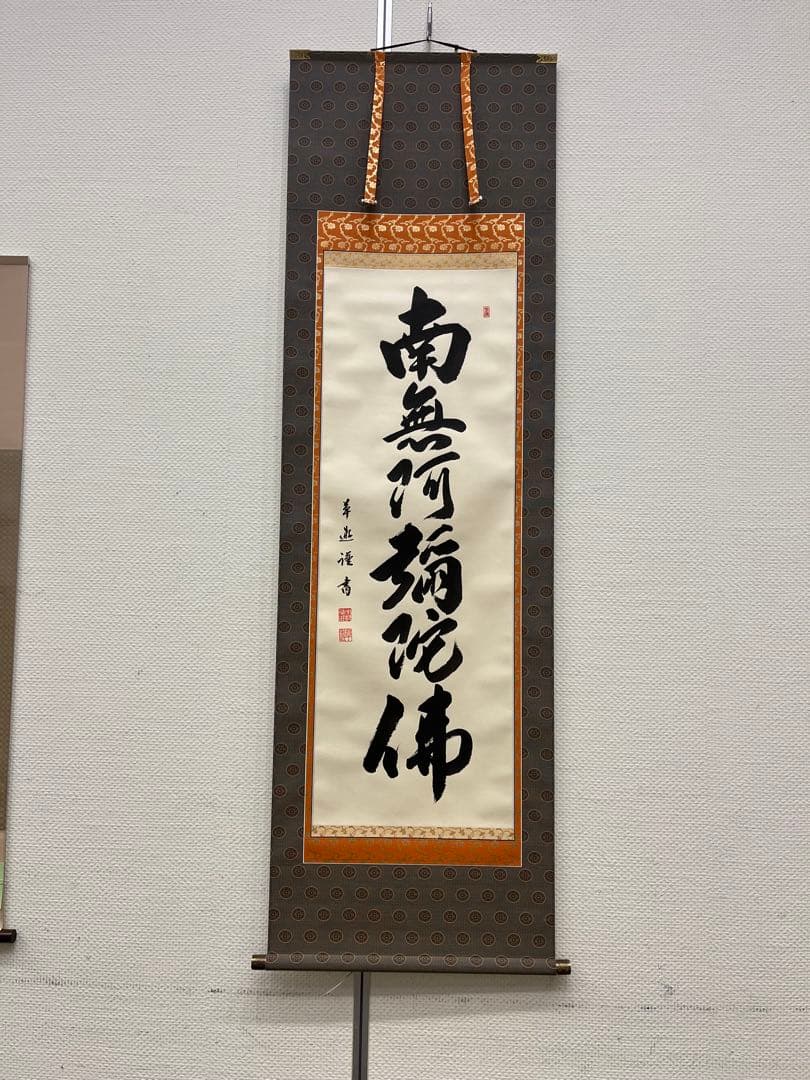 南無阿彌陀佛
華遊謹書